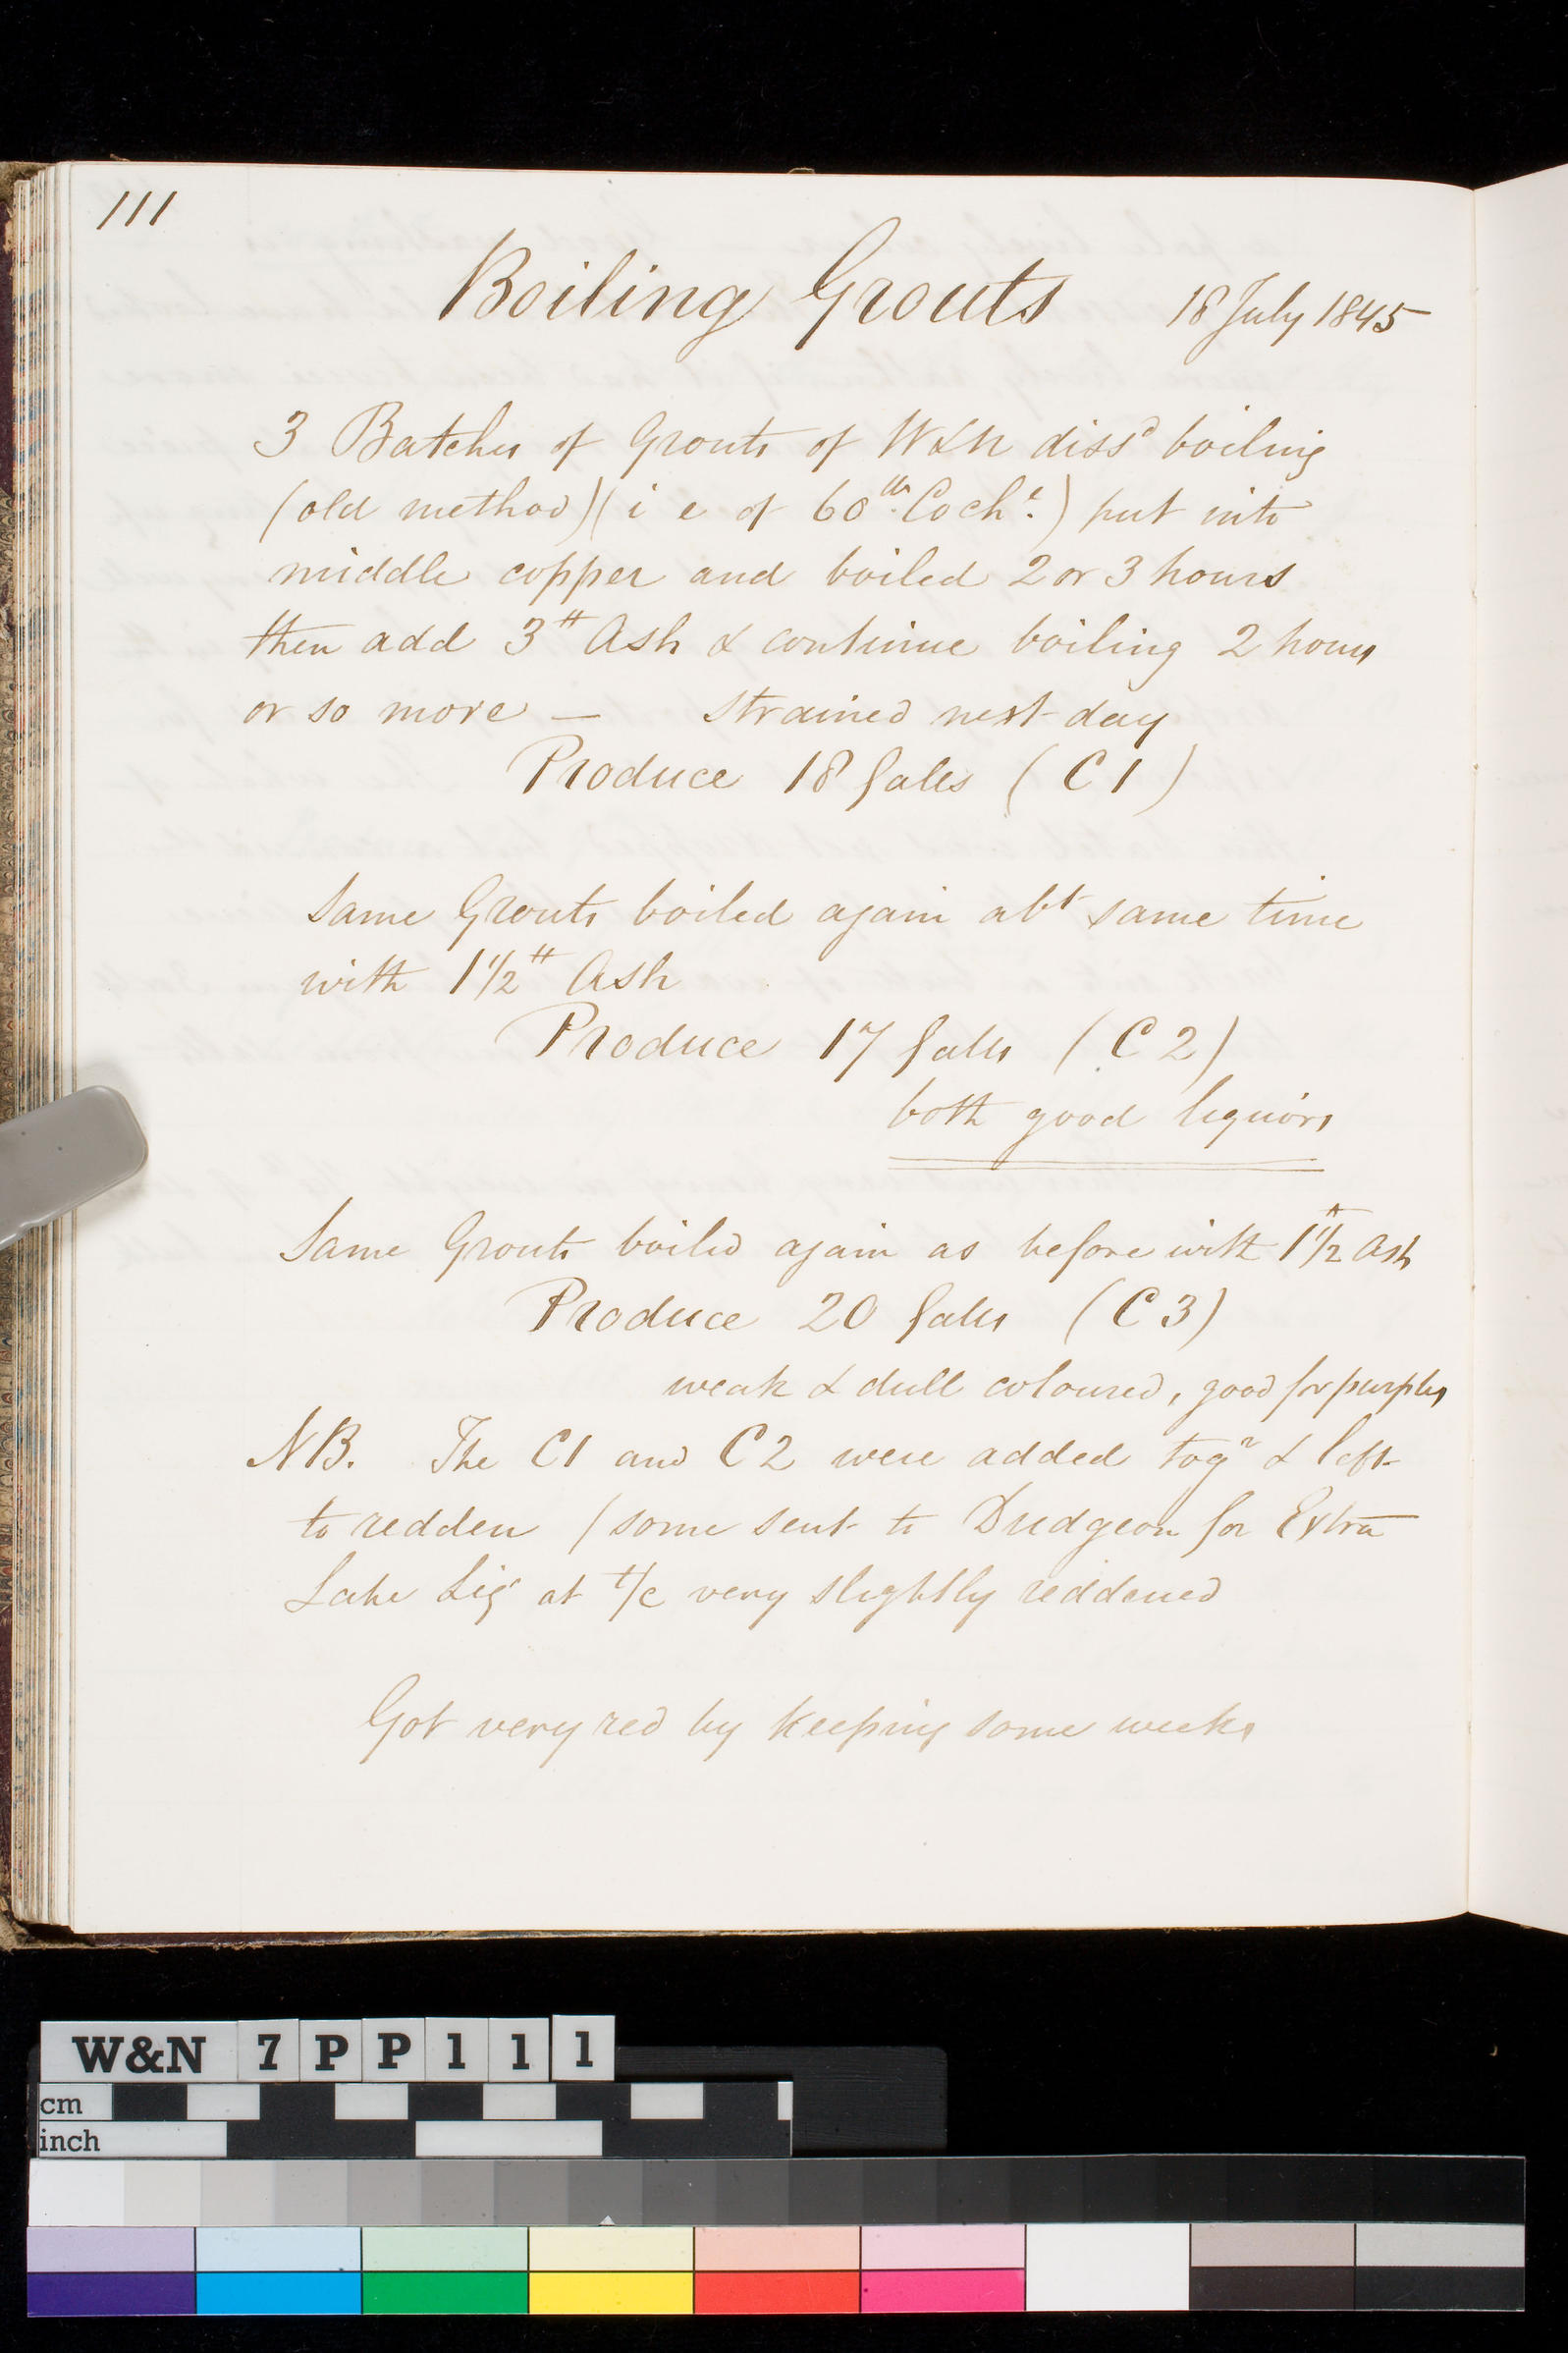 111
Boiling Grouts 18 July 1845
3 Batches of Grouts of W&N dissd boiling
(old method) (i e of 60 lb. Cochl.) put into
middle copper and boiled 2 or 3 hours
then add 3 lb Ash & continue boiling 2 hours
or so more — strained next day
Produce 18 Galls (C1)
Same Grouts boiled again abt same time
with 1 1/2 lb Ash
Produce 17 Galls (C2)
both good liquors
Same Grouts boiled again as before with 1 1/2 lb Ash
Produce 20 Galls (C3)
weak & dull coloured, good for purples
NB. The C1 and C2 were added togr & left
to redden (some sent to Dudgeon for Extra
Lake Liqr at very slightly reddened
Got very red by keeping some weeks
W&N 7PP111
cm
inch